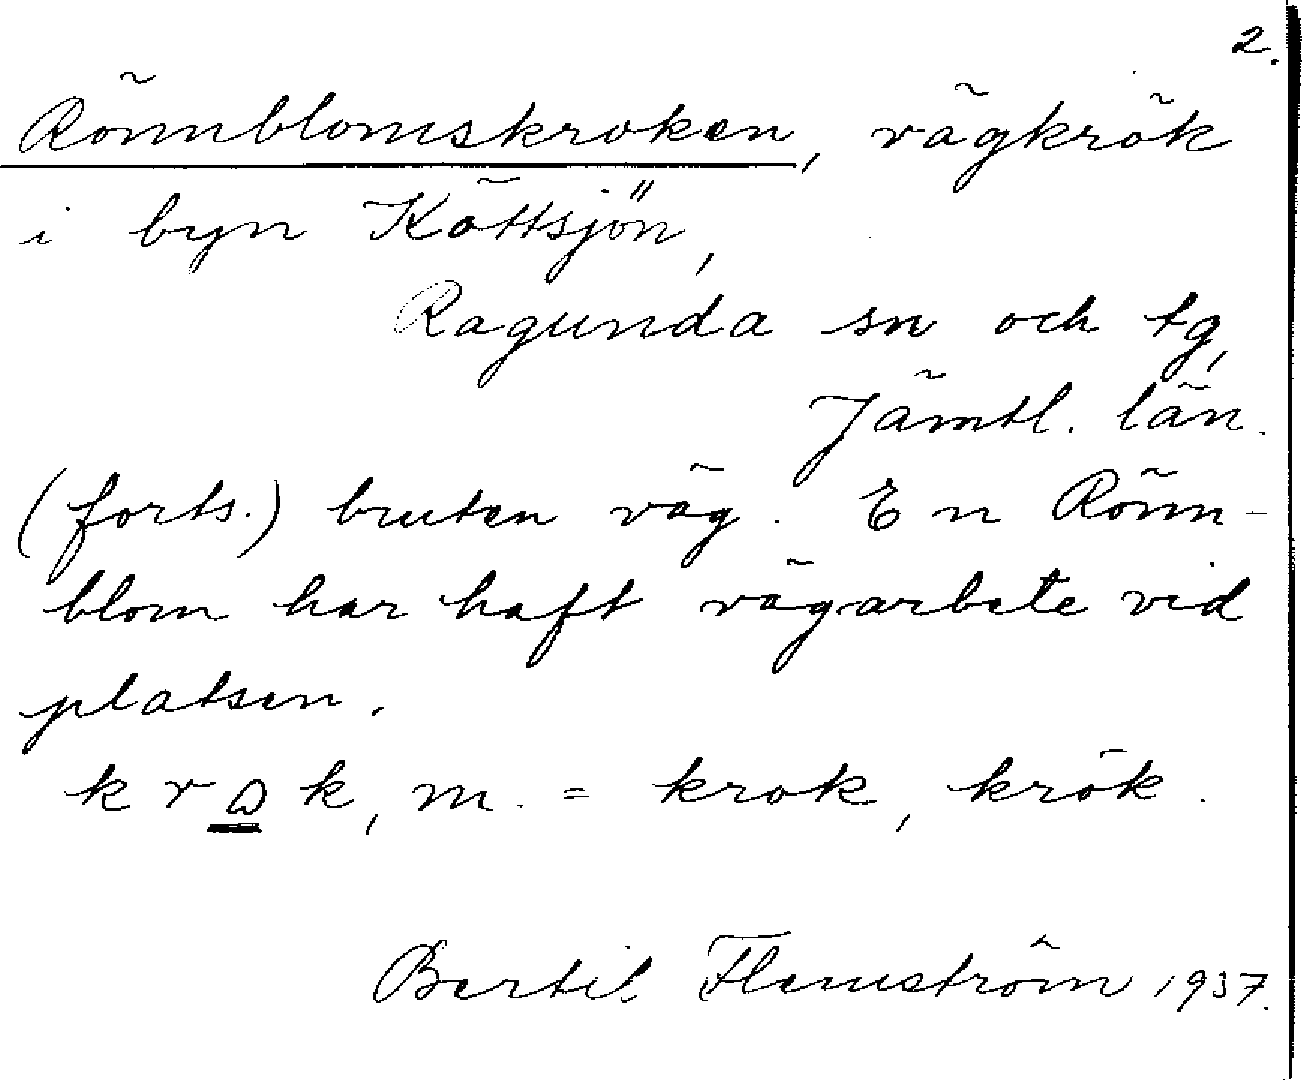 2.
Rönnblomskroken, vägkrök
i byn Köttsjön,
Ragunda sn och tg,
Jämtl. län.
(forts.) bruten väg. En Rönn-
blom har haft vägarbete vid
platsen.
krωk, m. = krok, krök.
Bertil Flemström 1937.